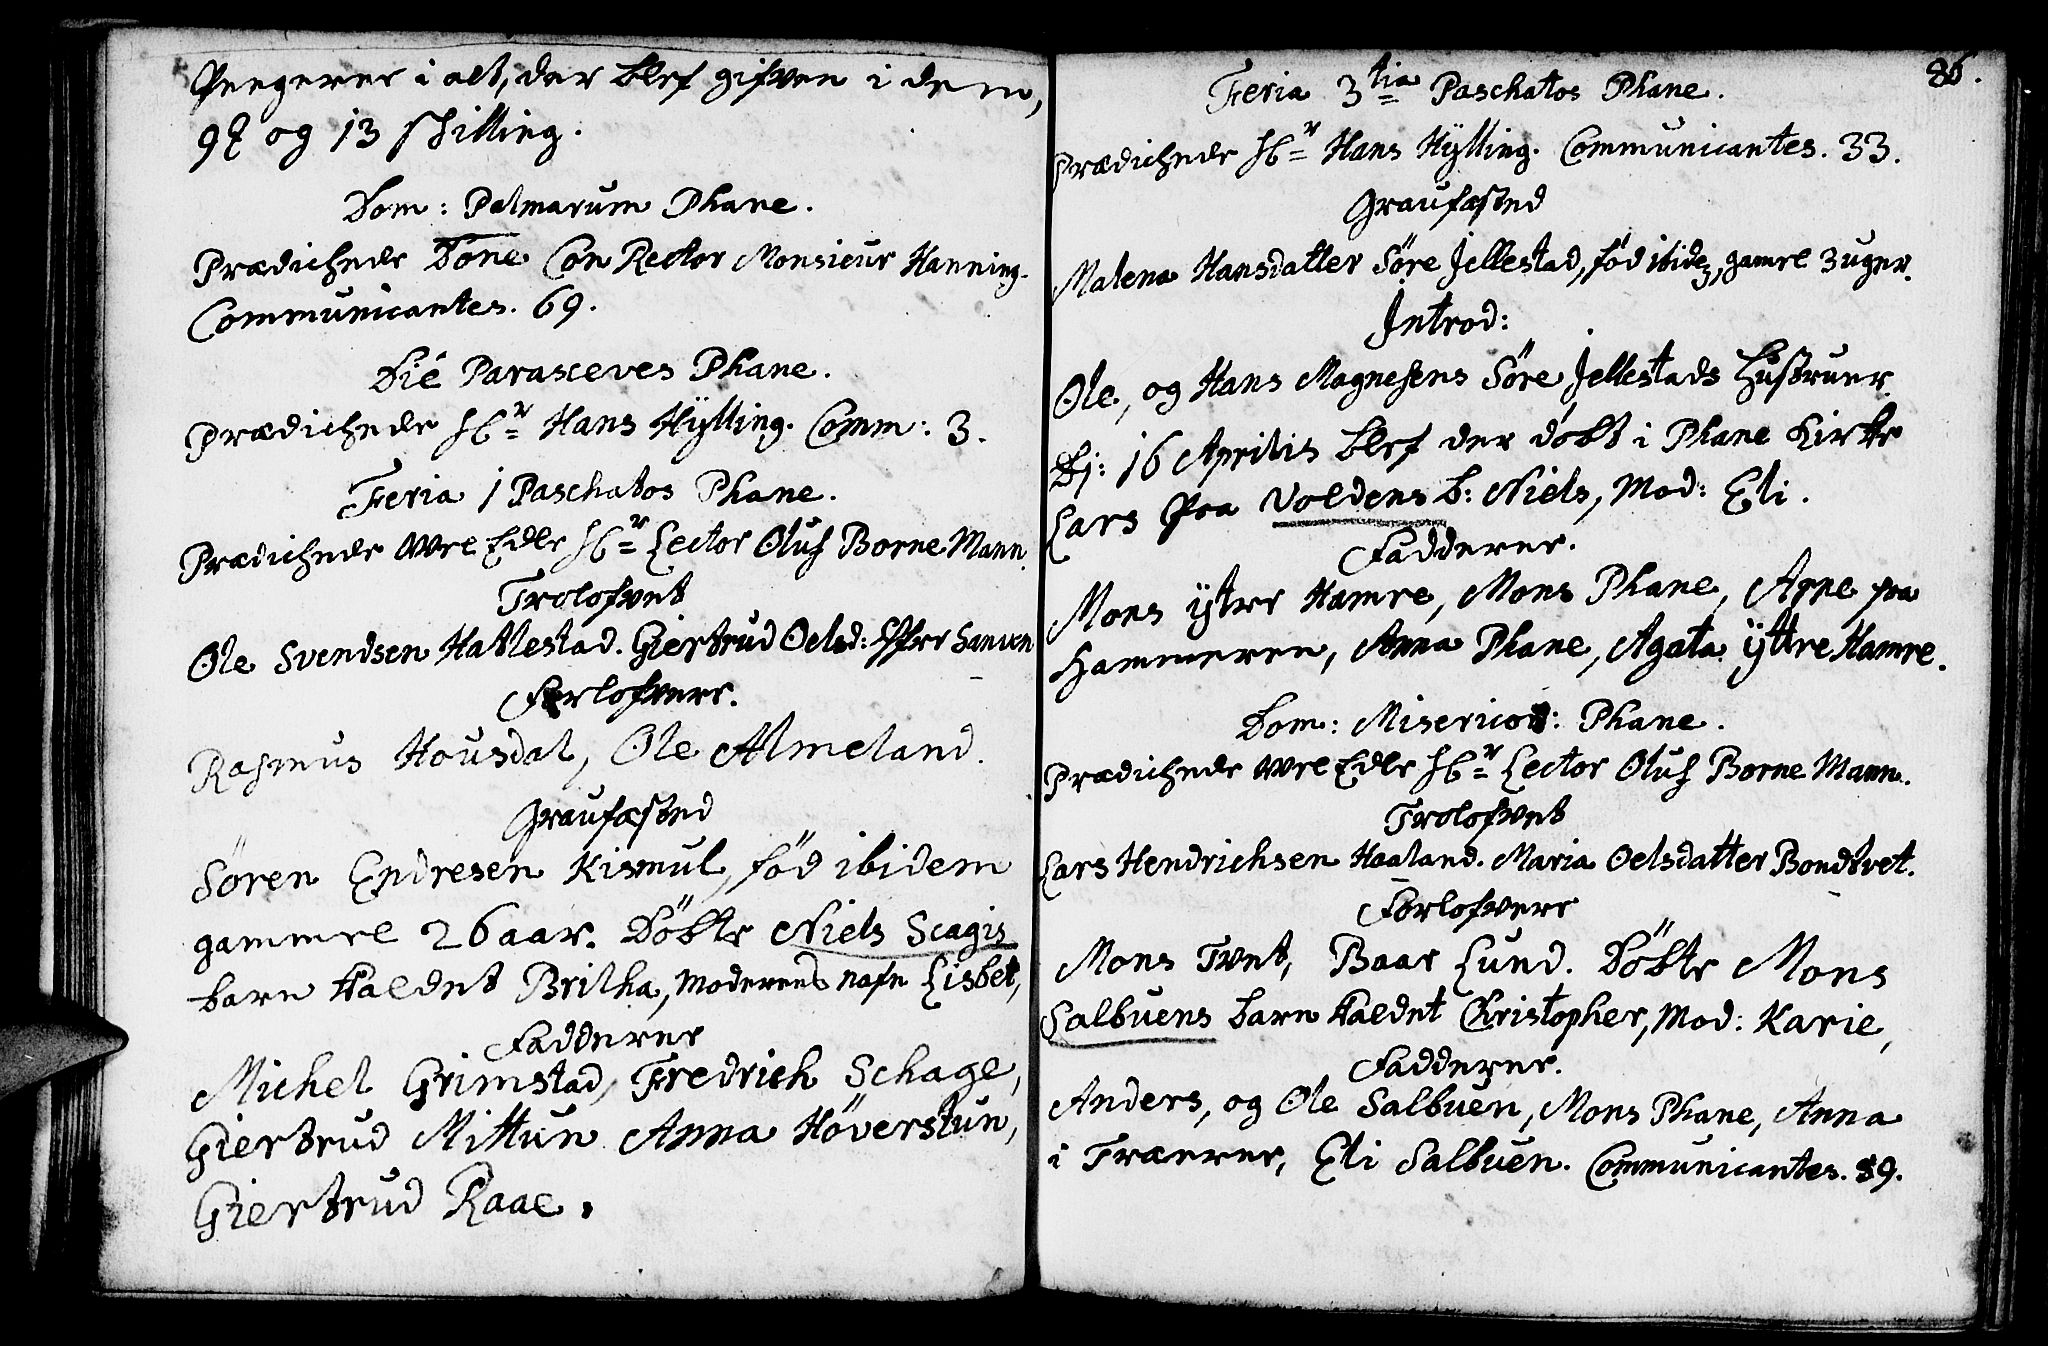 Pengerne i alt, der blef gifven i dem,
og 13 skilling.
Dom: Palmarum Phane.
Prædichede Dōne Con Rector Monsieur Hanning.
Communicantes. 69.
Die Parasceves Phane.
Prædichede Hr Hans Hÿlling. Comm: 3.
Feria 1 Paschatos Phane.
Prædichede Wel Edle Hr Lector Oluf Borne Mann.
Trolofvet
Ole Svendsen Hatlestad. Giertrud Oelsd:
Forlofvere.
Rasmus Housdal, Ole Almeland.
Graufæsted
Sören Endresen Kismul, föd ibidem
gammel 26 aar. Döbte Niels Scagis
barn kaldet Britha, Moderens nafn Lisbet,
Fadderne
Michel Grimstad, Fredrich Schage,
Giertrud Mittun Anna Höverstun,
Giertrud Raae.
86.
Feria 3tia Paschatos Phane.
Prædichede Hr Hans Hÿlling. Communicantes. 33.
Graufæsted
Malena Hansdatter Söre Jellestad, föd ibidē, gamel 3 uger.
Introd:
Ole, og Hans Magnesens Söre Jellestads Hustruer.
Dj: 16 Aprilis blef der döbt i Phane Kirke
Lars paa Voldens b: Niels, Mod: Eli.
Fadderne.
Mons ÿtre Hamre, Mons Phane, Arne paa
Hammeren, Anna Phane, Agata ÿttre Hamre.
Dom: Misericor: Phane.
Prædichede Wel Edle Hr Lector Oluf Borne Mann.
Trolofvet
Lars Hendrichsen Haaland. Maria Oelsdatter Bondtvet.
Forlofvere
Mons Tvet, Baar Lund. Döbte Mons
Salbuens barn kaldet Christopher, Mod: Karie,
Fadderne.
Anders, og Ole Salbuen, Mons Phane, Anna
i Træerne, Eli Salbuen. Communicantes. 89.